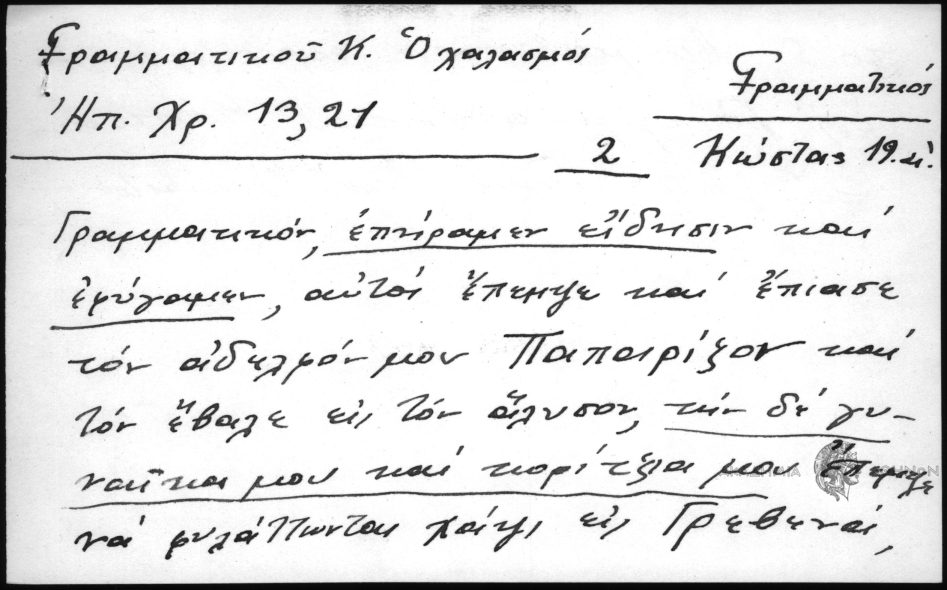 Γραμματικοῦ Κ. Ὁ χαλασμός
Ἠπ. Χρ. 13, 21
Γραμματικός
2
Κώστας 19.
Γραμματικόν, ἐπήραμεν εἴδησιν καί
ἐφύγαμεν, αὐτός ἔπεμψε καί ἔπιασε
τόν ἀδελφόν μου Παπαρίζον καί
τόν ἔβαλε εἰς τόν ἅλυσον, τήν δέ γυ-
ναῖκα μου καί κορίτζια μου ἔπεμψε
νά φυλάττωνται χάψι εἰς Γρεβενά,